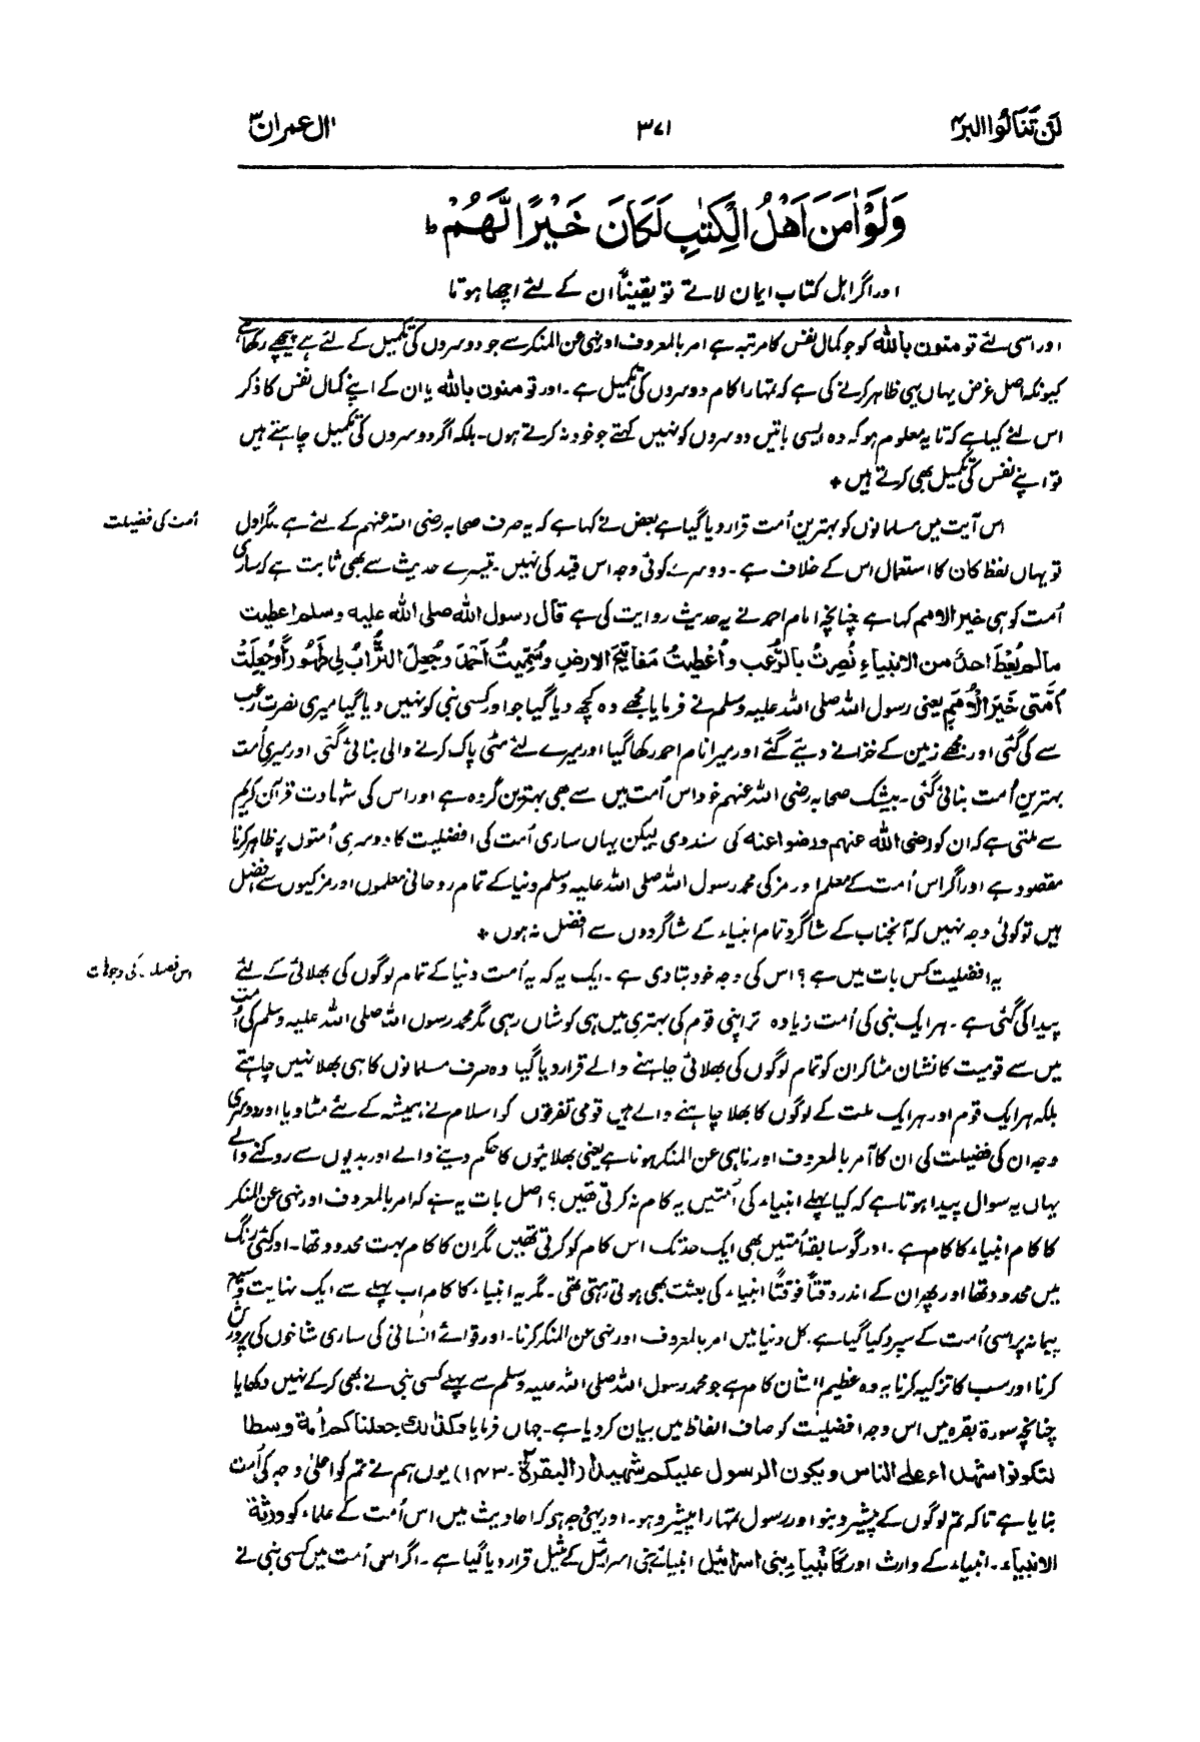 لَن تَنَالُوا البر ۴
۳۷۱
اٰل عمران ۳
وَلَوْ اٰمَنَ اَهْلُ الْكِتٰبِ لَكَانَ خَيْرًا لَّهُمْ ؕ
اور اگر اہل کتاب ایمان لاتے تو یقیناً ان کے لئے اچھا ہوتا
اور اسی لئے تو منون باللہ کو جو کمال نفس کا مرتبہ ہے امر بالمعروف اور نہی عن المنکر سے جو دوسروں کی تکمیل کے لئے ہے پیچھے رکھا ہے
کیونکہ اصل غرض یہاں یہی ظاہر کرنے کی ہے کہ تمہارا کام دوسروں کی تکمیل ہے۔ اور تو منون باللہ یا ان کے اپنے کمال نفس کا ذکر
اس لئے کیا ہے کہ تا یہ معلوم ہو کہ وہ ایسی باتیں دوسروں کو نہیں کہتے جو خود نہ کرتے ہوں۔ بلکہ اگر دوسروں کی تکمیل چاہتے ہیں
تو اپنے نفس کی تکمیل بھی کرتے ہیں ٭
اُمت کی فضیلت
اس آیت میں مسلمانوں کو بہترین اُمت قرار دیا گیا ہے بعض نے کہا ہے کہ یہ صرف صحابہ رضی اللہ عنہم کے لئے ہے مگر اول
تو یہاں لفظ کان کا استعمال اس کے خلاف ہے۔ دوسرے کوئی وجہ اس قید کی نہیں۔ تیسرے حدیث سے بھی ثابت ہے کہ ساری
اُمت کو ہی خیر الامم کہا ہے چنانچہ امام احمد نے یہ حدیث روایت کی ہے قال رسول اللہ صلی اللہ علیہ وسلم اعطیت
مالم یُعْطَ احدٌ من الانبیاءِ نُصِرتُ بالرُّعب واُعْطِیتُ مَفَاتِیْحَ الارضِ وسُمِّیتُ اَحْمَدَ وجُعِلَ التُّرَابُ لِی طَہُورًا وَجُعِلَتْ
اُمَّتِی خَیْرَ الْاُمَمِ یعنی رسول اللہ صلی اللہ علیہ وسلم نے فرمایا مجھے وہ کچھ دیا گیا جو اور کسی نبی کو نہیں دیا گیا میری نصرت رعب
سے کی گئی اور مجھے زمین کے خزانے دیئے گئے اور میرا نام احمد رکھا گیا اور میرے لئے مٹی پاک کرنے والی بنائی گئی اور میری اُمت
بہترین اُمت بنائی گئی۔ بیشک صحابہ رضی اللہ عنہم خود اس اُمت میں سے بھی بہترین گروہ ہے اور اس کی شہادت قرآن کریم
سے ملتی ہے کہ ان کو رضی اللہ عنہم ورضوا عنہ کی سند دی لیکن یہاں ساری اُمت کی افضلیت کا دوسری اُمتوں پر ظاہر کرنا
مقصود ہے اور اگر اس اُمت کے معلم اور مزکی محمد رسول اللہ صلی اللہ علیہ وسلم دنیا کے تمام روحانی معلموں اور مزکیوں سے افضل
ہیں تو کوئی وجہ نہیں کہ آنجناب کے شاگرد تمام انبیاء کے شاگردوں سے افضل نہ ہوں ٭
اس فضیلت کی وجوہات
یہ افضلیت کس بات میں ہے؟ اس کی وجہ خود بتا دی ہے۔ ایک یہ کہ یہ اُمت دنیا کے تمام لوگوں کی بھلائی کے لئے
پیدا کی گئی ہے۔ ہر ایک نبی کی اُمت زیادہ تر اپنی قوم کی بہتری میں ہی کوشاں رہی مگر محمد رسول اللہ صلی اللہ علیہ وسلم کی اُمت
میں سے قومیت کا نشان مٹا کر ان کو تمام لوگوں کی بھلائی چاہنے والے قرار دیا گیا وہ صرف مسلمانوں کا ہی بھلا نہیں چاہتے
بلکہ ہر ایک قوم اور ہر ایک ملت کے لوگوں کا بھلا چاہنے والے ہیں قومی تفرقوں کو اسلام نے ہمیشہ کے لئے مٹا دیا اور دوسری
وجہ ان کی فضیلت کی ان کا آمر بالمعروف اور ناہی عن المنکر ہونا ہے یعنی بھلائیوں کا حکم دینے والے اور بدیوں سے روکنے والے
یہاں یہ سوال پیدا ہوتا ہے کہ کیا پہلے انبیاء کی اُمتیں یہ کام نہ کرتی تھیں؟ اصل بات یہ ہے کہ امر بالمعروف اور نہی عن المنکر
کا کام انبیاء کا کام ہے۔ اور گو سابقہ اُمتیں بھی ایک حد تک اس کام کو کرتی تھیں مگر ان کا کام بہت محدود تھا۔ اور کئی رنگ
میں محدود تھا اور پھر ان کے اندر وقتاً فوقتاً انبیاء کی بعثت بھی ہوتی رہتی تھی۔ مگر یہ انبیاء کا کام اب پہلے سے ایک نہایت وسیع
پیمانہ پر اسی اُمت کے سپرد کیا گیا ہے۔ کل دنیا میں امر بالمعروف اور نہی عن المنکر کرنا۔ اور قوائے انسانی کی ساری شاخوں کی پرورش
کرنا اور سب کا تزکیہ کرنا یہ وہ عظیم الشان کام ہے جو محمد رسول اللہ صلی اللہ علیہ وسلم سے پہلے کسی نبی نے بھی کر کے نہیں دکھایا
چنانچہ سورۃ بقرہ میں اس وجہ افضلیت کو صاف الفاظ میں بیان کر دیا ہے۔ جہاں فرمایا وکذٰلک جعلناکم اُمۃ وسطا
لتکونوا شہداء علی الناس ویکون الرسول علیکم شہیدًا (البقرۃ۔۱۴۳) یوں ہم نے تم کو اعلیٰ درجہ کی اُمت
بنایا ہے تاکہ تم لوگوں کے پیشرو بنو اور رسول تمہارا پیشرو ہو۔ اور یہی وجہ ہو کہ احادیث میں اس اُمت کے علماء کو ورثۃ
الانبیاء۔ انبیاء کے وارث اور کَاَنْبِیَاءِ بنی اسرائیل انبیائے بنی اسرائیل کے مثیل قرار دیا گیا ہے۔ اگر اس اُمت میں کسی نبی نے